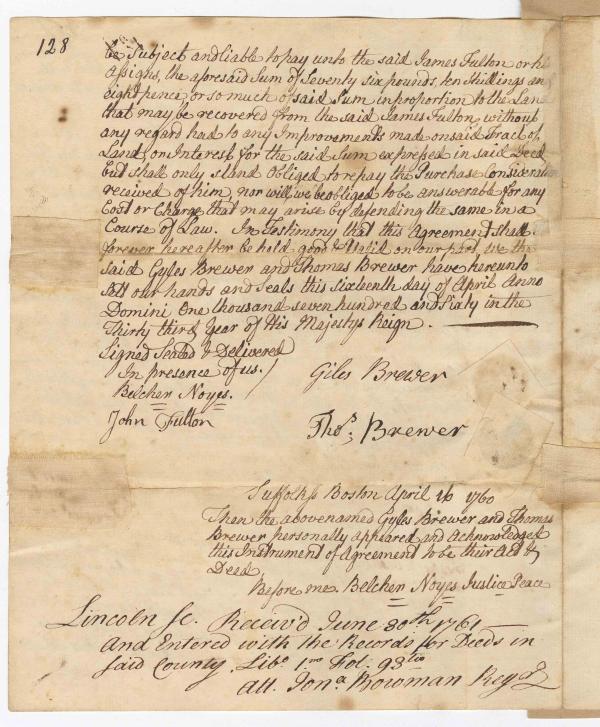 128
be Subject and liable to pay unto the said James Fulton or his
Assigns, the aforesaid Sum of Seventy six pounds, ten Shillings and
eight pence, or so much of said Sum in proportion to the Land
that may be recovered from the said James Fulton, without
any regard had to any Improvements made on said Tract of
Land, or Interest for the said Sum expressed in said Deed
but shall only stand Obliged to repay the Purchase Consideration
received of him, nor will we be obliged to be answerable for any
Cost or Charge that may arise by defending the same in a
Course of Law. In Testimony that this Agreement shall
forever hereafter be held good & Valid on our part, we the
said Gyles Brewer and Thomas Brewer have hereunto
sett our hands and seals this sixteenth day of April Anno
Domini One thousand seven hundred and Sixty in the
Thirty third Year of His Majestys Reign.
Signed Sealed & Delivered
In presence of us.
Belcher Noyes.
John Fulton
Giles Brewer
Thos; Brewer
Suffolk ss Boston April 16 1760
Then the abovenamed Gyles Brewer and Thomas
Brewer personally appeared and Acknowledged
this Instrument of Agreement to be their Act &
Deed,
Before me Belcher Noyes Justice Peace
Lincoln sc. Receiv'd June 30th 1761
And Entered with the Records for Deeds in
said County. Libo 1mo Fol. 93tio
Att. Jona Bowman Regr